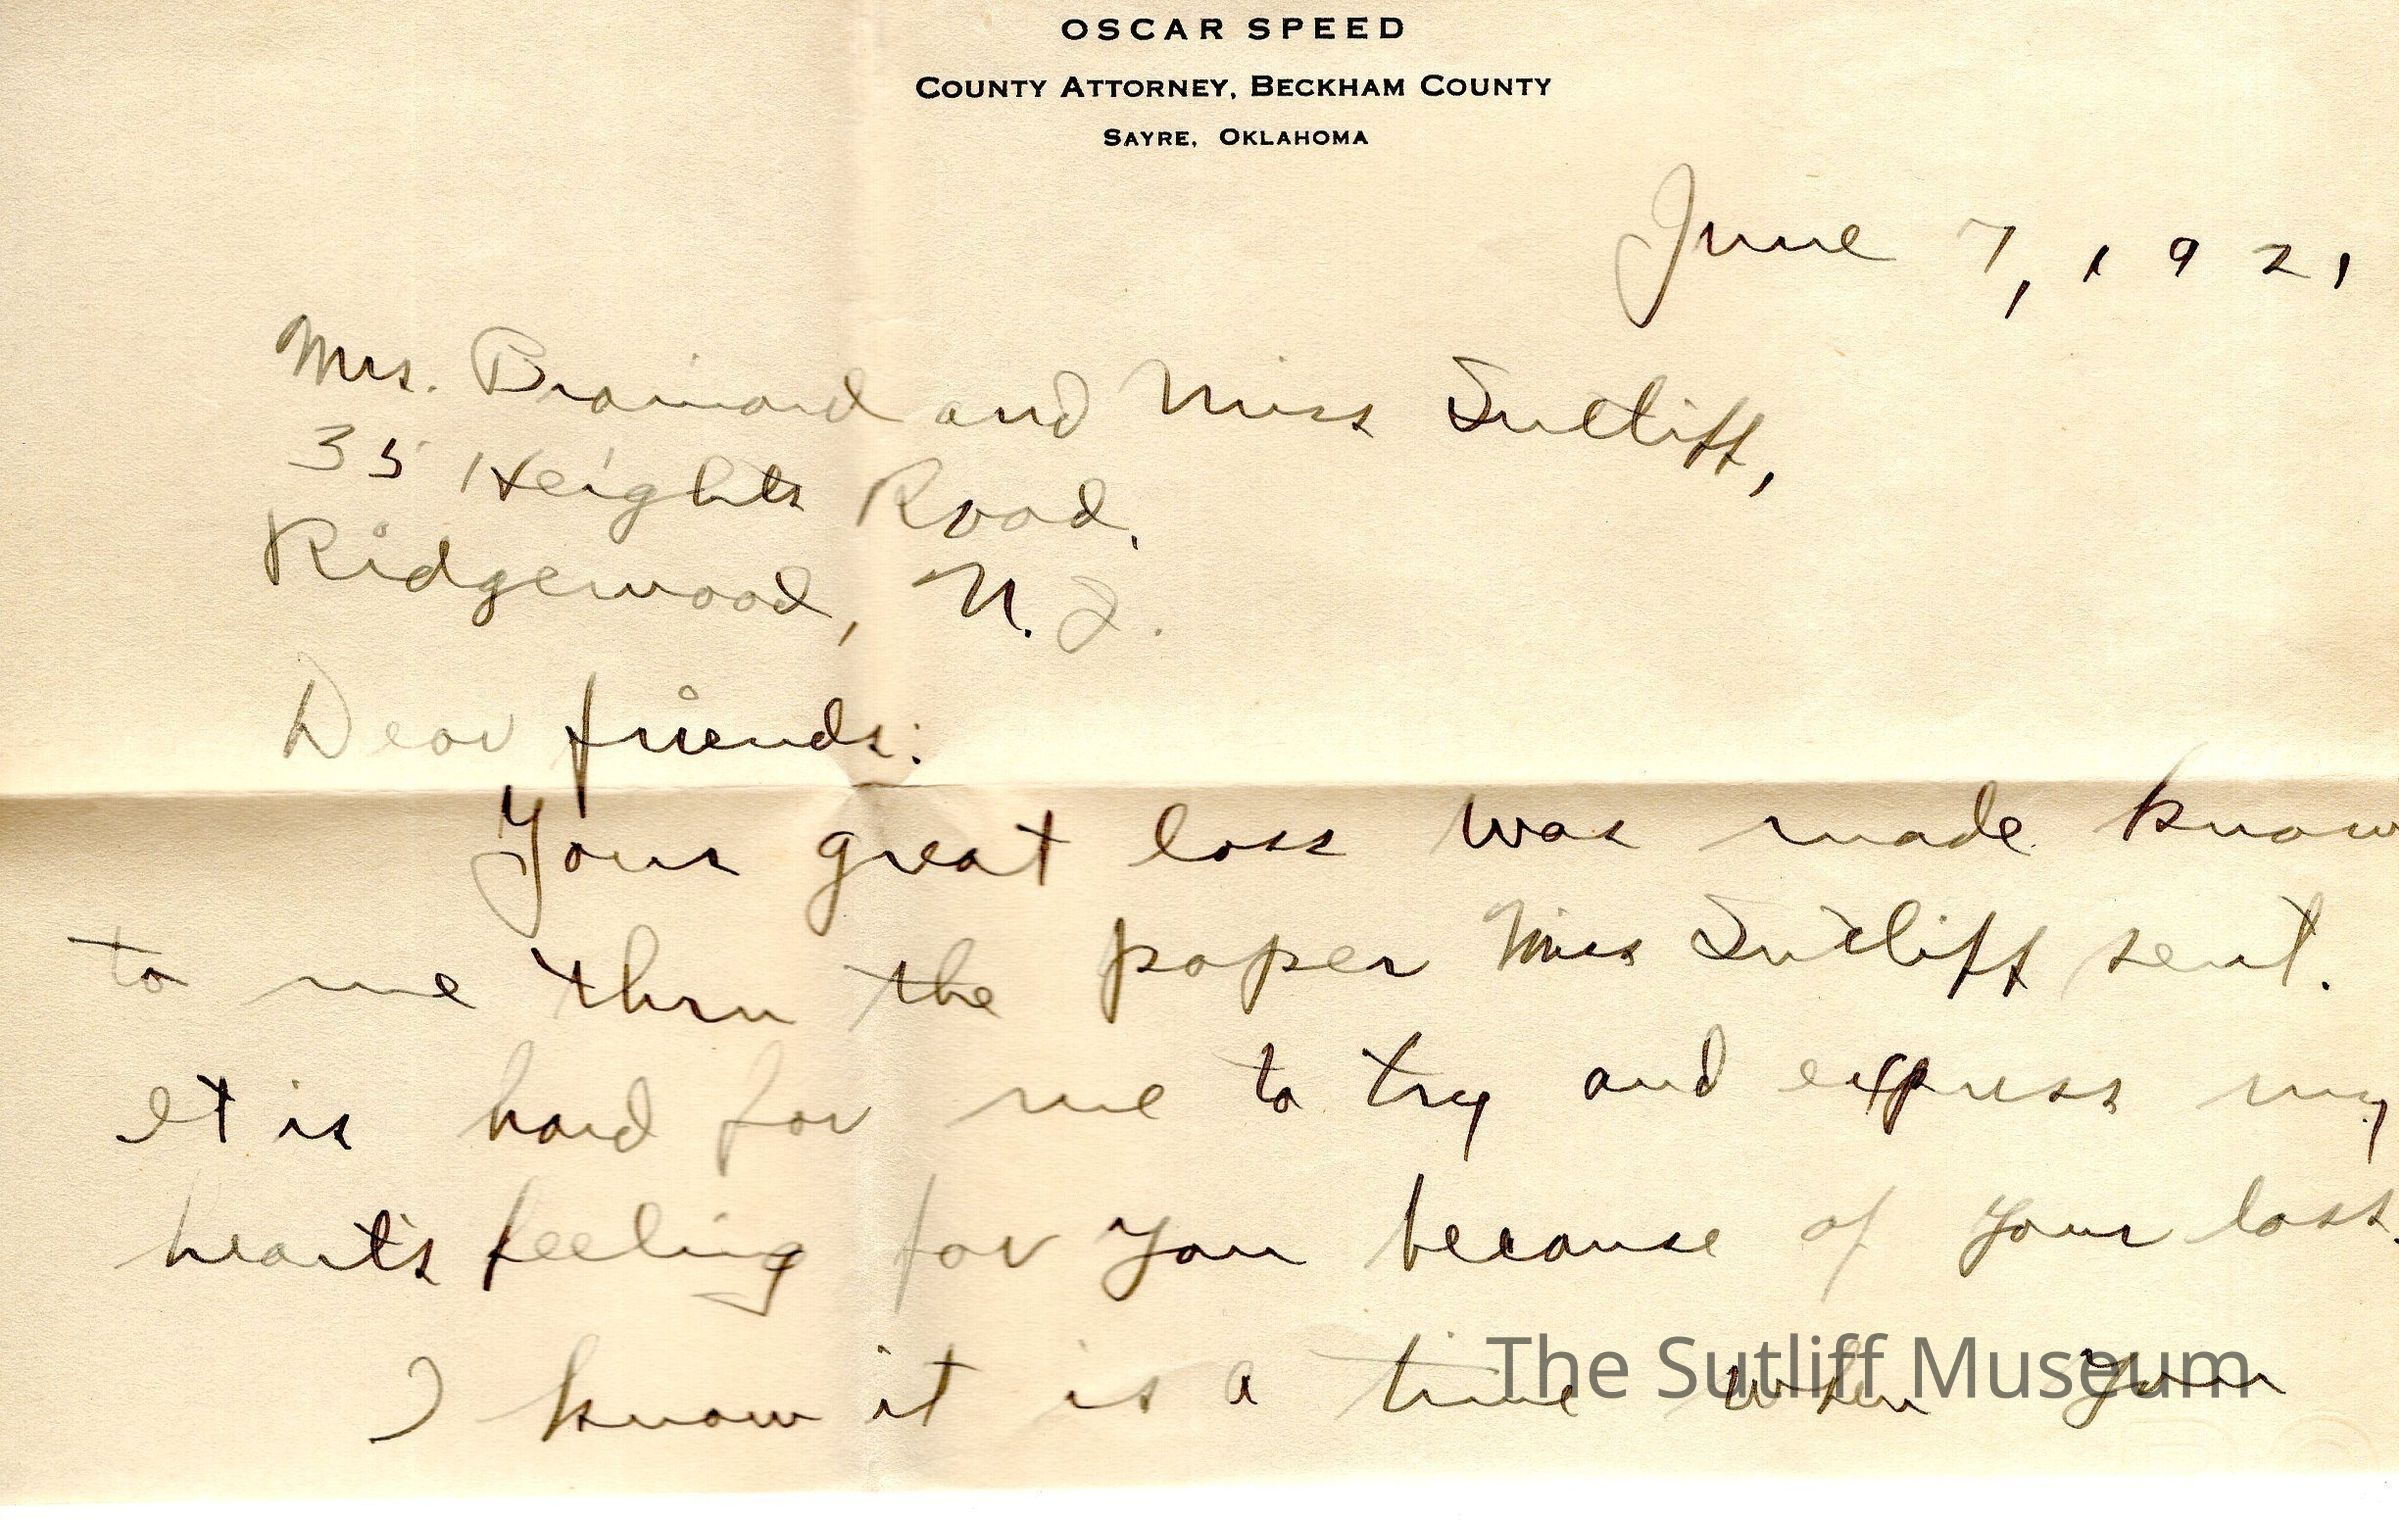 OSCAR SPEED
COUNTY ATTORNEY, BECKHAM COUNTY
SAYRE, OKLAHOMA
June 7, 1921
Mrs. Brainard and Miss Sutliff,
35 Heights Road,
Ridgewood, N.J.
Dear friends:
Your great loss was made know
to me thru the paper Miss Sutliff sent.
It is hard for me to try and express my
heart's feeling for you because of your loss.
I know it is a time when you
The Sutliff Museum